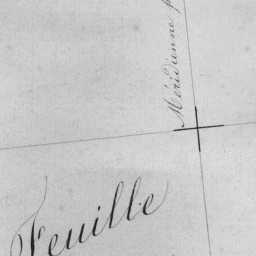 Méridienne
Feuille